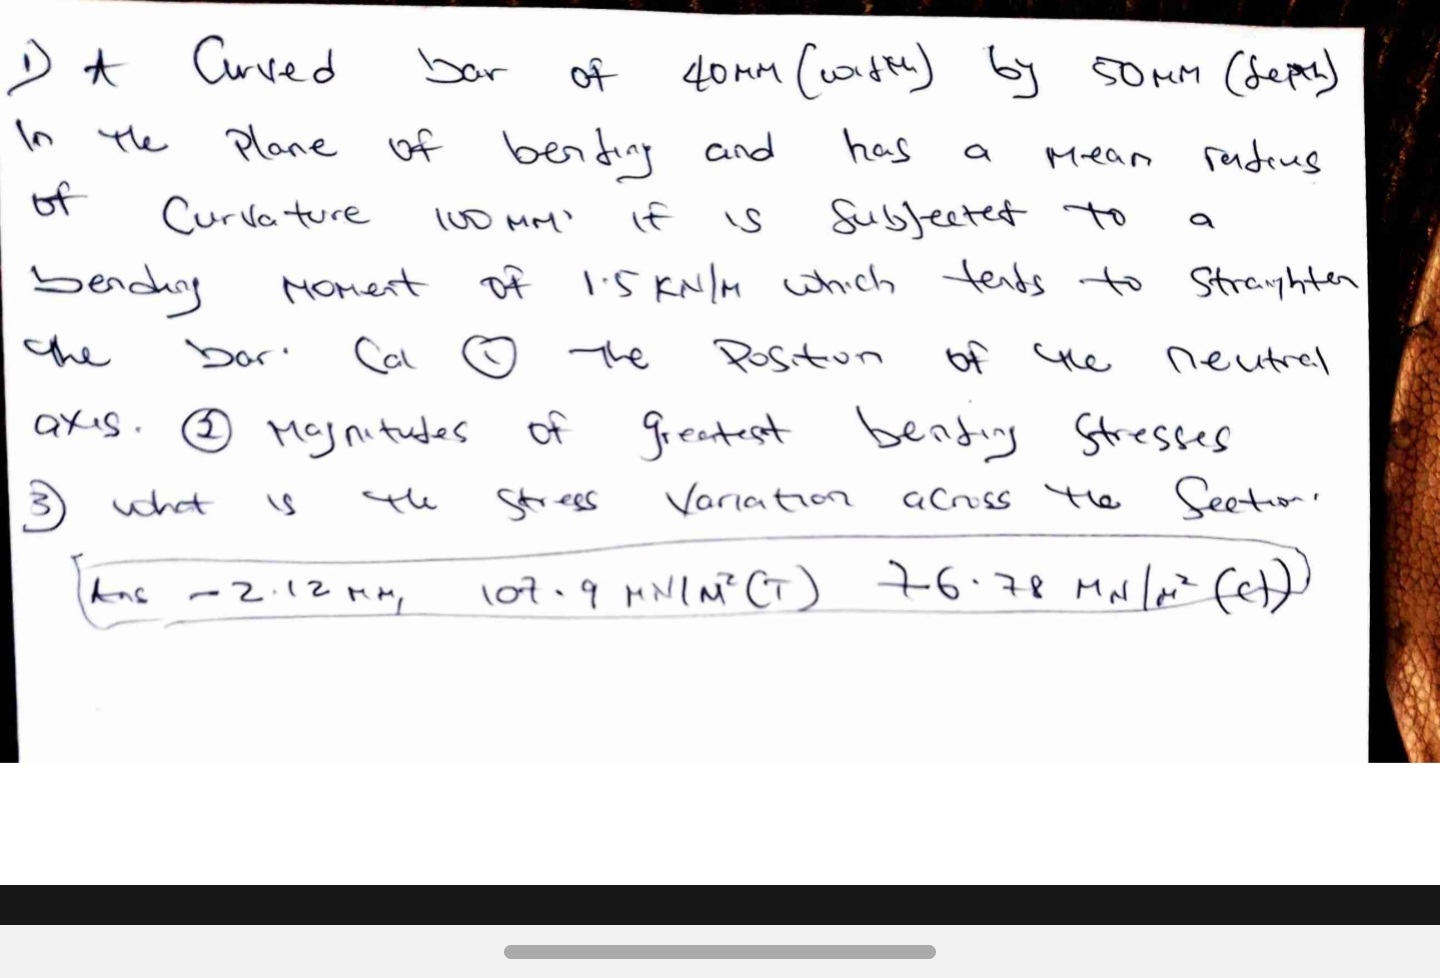 1) A Curved bar of 40mm (width) by 50mm (depth)
In the plane of bending and has a mean radius
of Curvature 100mm. It is Subjected to a
bending Moment of 1.5 KN/m which tends to straighten
the bar. Cal ① The Position of the neutral
axis. ② Magnitudes of greatest bending Stresses
③ what is the stress Variation across the Section.
Ans -2.12 mm, 107.9 MN/m² (T) 76.78 MN/m²